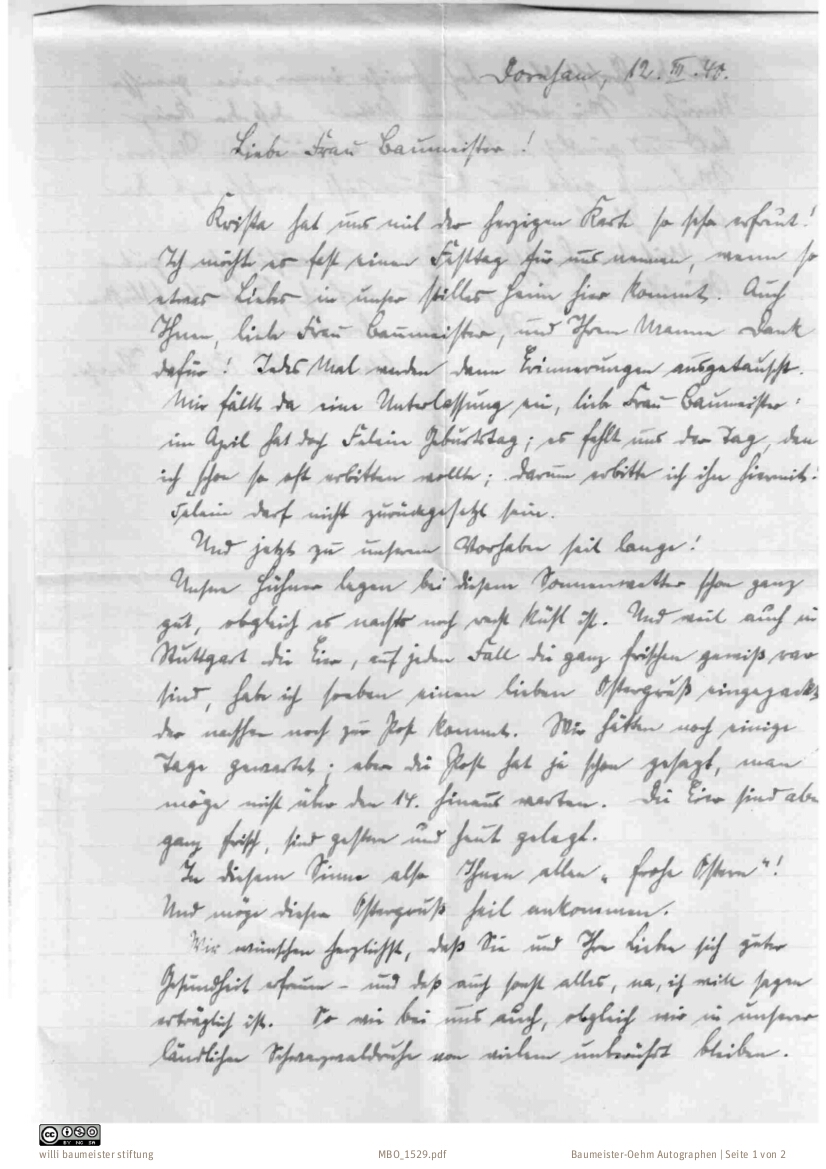 Dornhan, 12. III. 40.
Liebe Frau Baumeister!
Krista hat uns mit der herzigen Karte so sehr erfreut!
Ich möchte es fast einen Festtag für uns nennen, wenn so
etwas Liebes in unser stilles Heim hier kommt. Auch
Ihnen, liebe Frau Baumeister, und Ihrem Manne Dank
dafür! Jedes Mal werden dann Erinnerungen ausgetauscht.
Mir fällt da eine Unterlassung ein, liebe Frau Baumeister:
im April hat doch Felein Geburtstag; es fehlt uns der Tag, den
ich schon so oft erbitten wollte; darum erbitte ich ihn hiermit!
Felein darf nicht zurückgesetzt sein.
Und jetzt zu unserem Vorhaben seit lange!
Unsere Hühner legen bei diesem Sonnenwetter schon ganz
gut, obgleich es nachts noch recht kühl ist. Und weil auch in
Stuttgart die Eier, auf jeden Fall die ganz frischen gewiß rar
sind, habe ich soeben einen lieben Ostergruß eingepackt
der nachher noch zur Post kommt. Wir hätten noch einige
Tage gewartet; aber die Post hat ja schon gesagt, man
möge nicht über den 14. hinaus warten. Die Eier sind aber
ganz frisch, sind gestern und heut gelegt.
In diesem Sinne also Ihnen allen „frohe Ostern"!
Und möge dieser Ostergruß heil ankommen.
Wir wünschen herzlichst, daß Sie und Ihre Lieben sich guter
Gesundheit erfreuen – und daß auch sonst alles, na, ich will sagen
erträglich ist. So wie bei uns auch, obgleich wir in unserer
ländlichen Schwarzwaldruhe von vielem unberührt bleiben.
willi baumeister stiftung
MBO_1529.pdf
Baumeister-Oehm Autographen | Seite 1 von 2